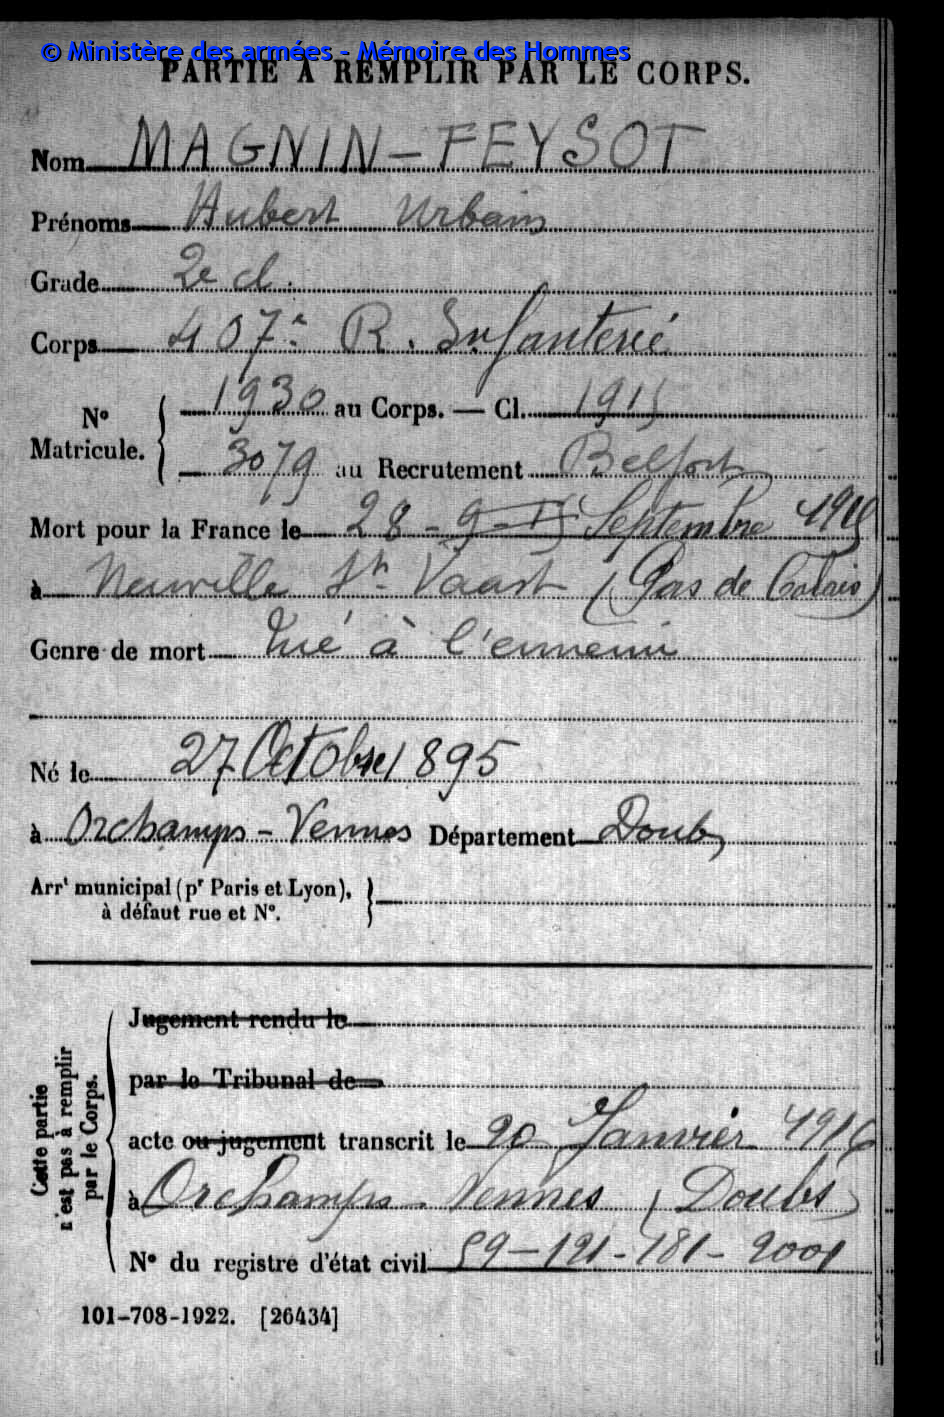 © Ministère des armées - Mémoire des Hommes
PARTIE À REMPLIR PAR LE CORPS.
Nom MAGNIN-FEYSOT
Prénoms Hubert Urbain
Grade 2e cl.
Corps 407e R. Infanterie
N° Matricule. { 1930 au Corps. — Cl. 1915
3079 au Recrutement Belfort
Mort pour la France le 28 - 9-15 Septembre 1915
à Neuville St Vaast (Pas de Calais)
Genre de mort Tué à l'ennemi
Né le 27 Octobre 1895
à Orchamps-Vennes Département Doubs
Arrt municipal (pr Paris et Lyon),
à défaut rue et N°.
Cette partie n'est pas à remplir par le Corps.
Jugement rendu le
par le Tribunal de
acte ou jugement transcrit le 20 Janvier 1916
à Orchamps-Vennes (Doubs)
N° du registre d'état civil
101-708-1922. [26434]